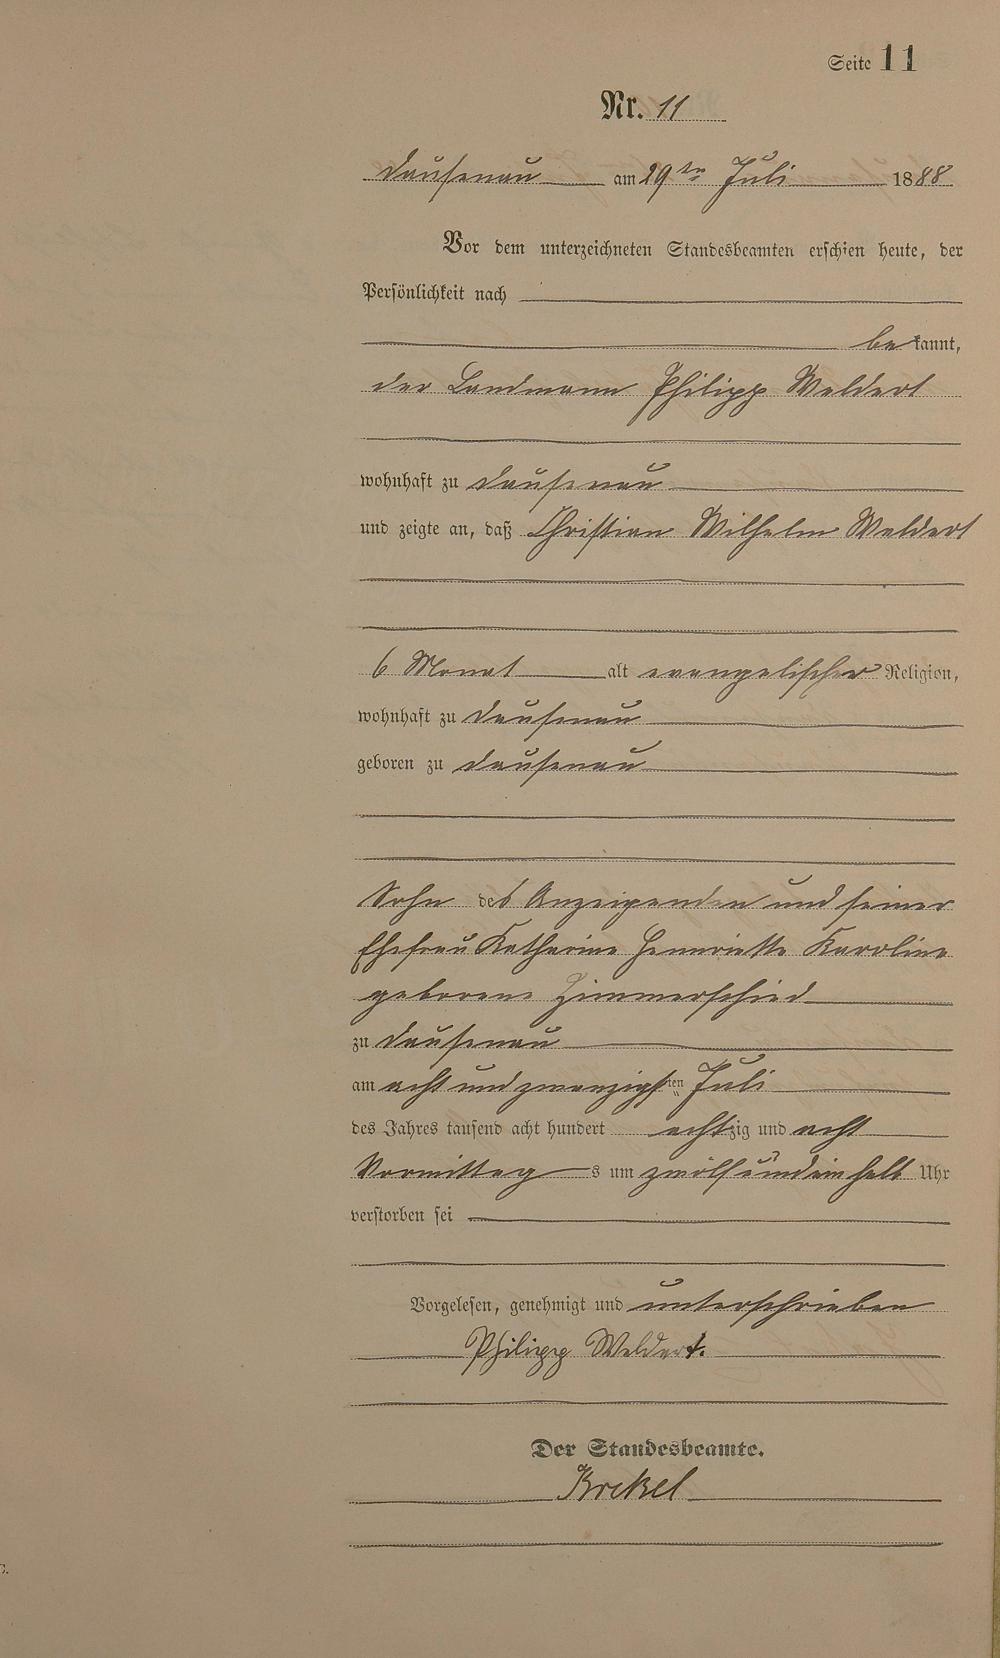 Seite 11
Nr. 11
Dausenau am 29ten Juli 1888
Vor dem unterzeichneten Standesbeamten erschien heute, der
Persönlichkeit nach
bekannt,
der Landmann Philipp Weldert
wohnhaft zu Dausenau
und zeigte an, daß Christian Wilhelm Weldert
6 Monat alt evangelischer Religion,
wohnhaft zu Dausenau
geboren zu Dausenau
Sohn des Anzeigenden und seiner
Ehefrau Katharine Henriette Karoline
geborene Zimmerschied
zu Dausenau
am acht und zwanzigsten Juli
des Jahres tausend acht hundert achtzig und acht
Vormittags um zwölfundeinhalb Uhr
verstorben sei
Vorgelesen, genehmigt und unterschrieben
Philipp Weldert.
Der Standesbeamte.